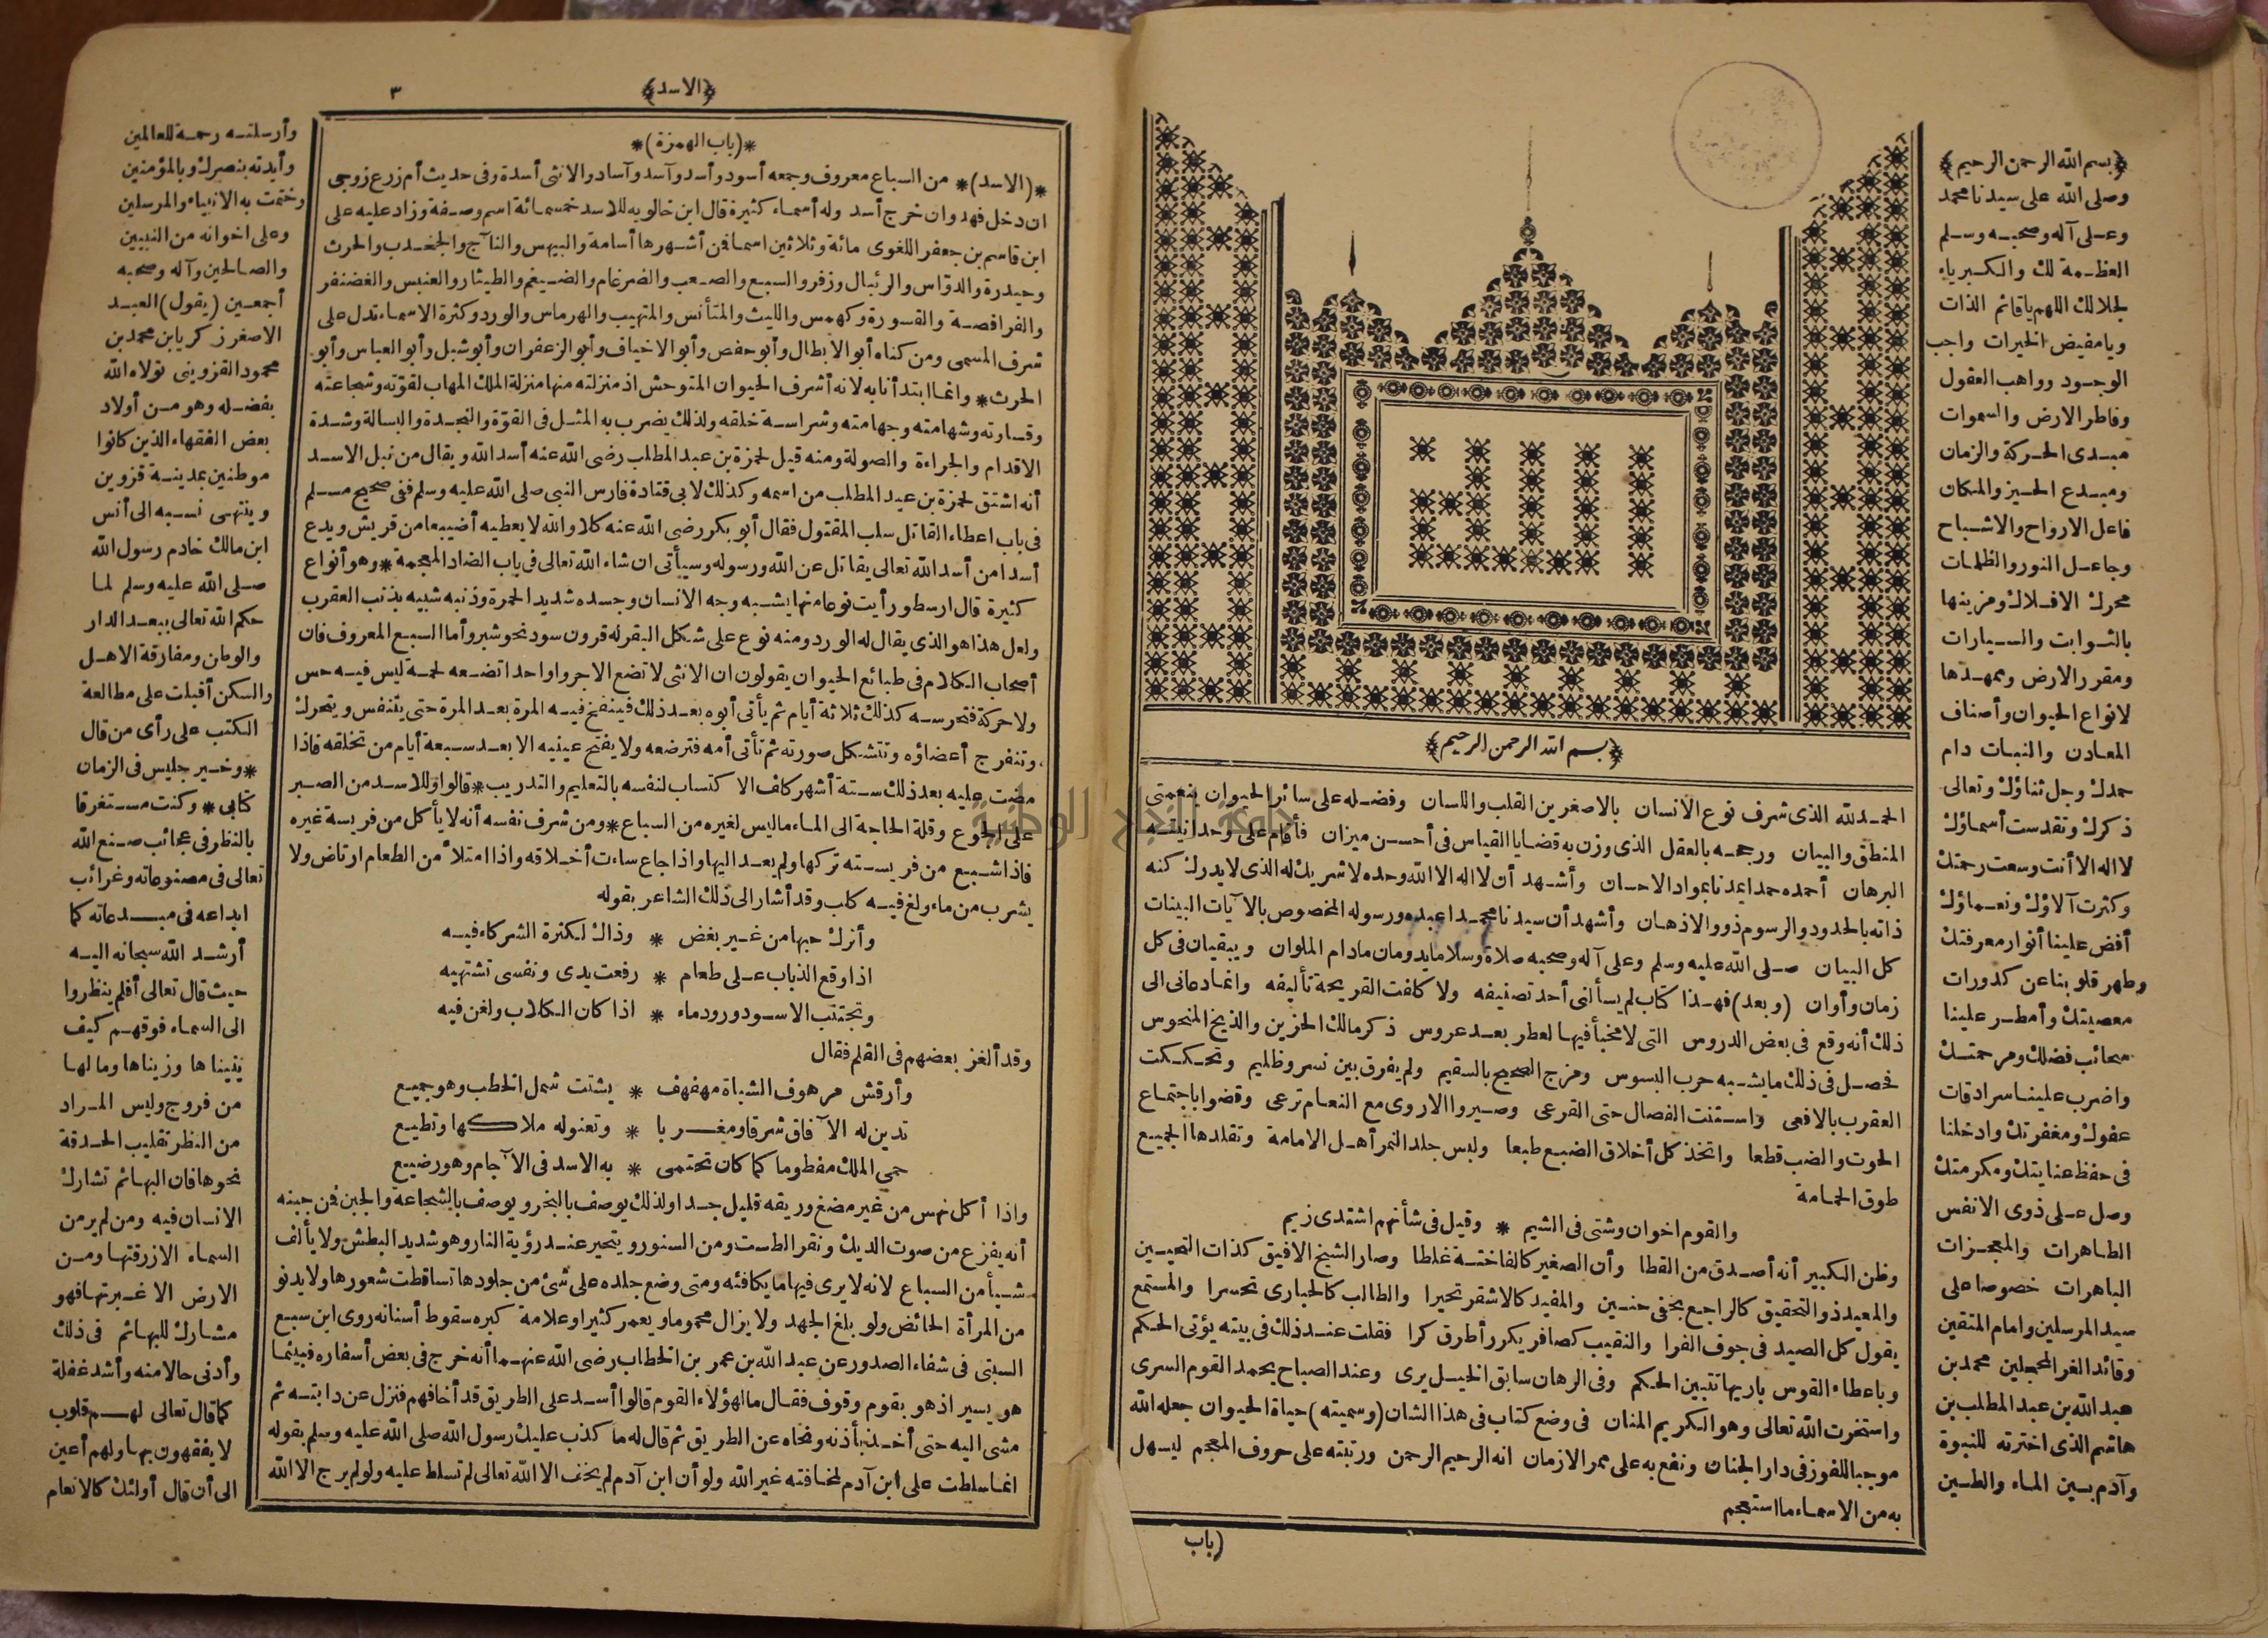 ﴿بسم الله الرحمن الرحيم﴾
وصلى الله على سيدنا محمد
وعلى آله وصحبه وسلم
العظمة لك والكبرياء
لجلالك اللهم يا قائم الذات
ويا مفيض الخيرات واجب
الوجود وواهب العقول
وفاطر الارض والسموات
مبدى الحركة والزمان
ومبدع الحيز والمكان
فاعل الارواح والاشباح
وجاعل النور والظلمات
محرك الافلاك ومزينها
بالثوابت والسيارات
ومقرر الارض وممهدها
لانواع الحيوان وأصناف
المعادن والنبات دام
حمدك وجل ثناؤك وتعالى
ذكرك وتقدست أسماؤك
لا اله الا أنت وسعت رحمتك
وكثرت آلاؤك ونعماؤك
أفض علينا أنوار معرفتك
وطهر قلوبنا عن كدورات
معصيتك وأمطر علينا
سحائب فضلك ومرحمتك
واضرب علينا سرادقات
عفوك ومغفرتك وادخلنا
فى حفظ عنايتك ومكرمتك
وصل على ذوى الانفس
الطاهرات والمعجزات
الباهرات خصوصا على
سيد المرسلين وامام المتقين
وقائد الغر المحجلين محمد بن
عبد الله بن عبد المطلب بن
هاشم الذى اخترته للنبوة
وآدم بين الماء والطين
الله
﴿بسم الله الرحمن الرحيم﴾
الحمد لله الذى شرف نوع الانسان بالاصغرين القلب واللسان وفضله على سائر الحيوان بنعمتى
المنطق والبيان ورجحه بالعقل الذى وزن به قضايا القياس فى أحسن ميزان فأقام على وحدانيته
البرهان أحمده حمدا يمدنا بمواد الاحسان وأشهد أن لا اله الا الله وحده لا شريك له الذى لا يدرك كنه
ذاته بالحدود والرسوم ذوو الاذهان وأشهد أن سيدنا محمدا عبده ورسوله المخصوص بالآيات البينات
كل البيان صلى الله عليه وسلم وعلى آله وصحبه صلاة وسلاما يدومان مادام الملوان ويبقيان فى كل
زمان وأوان (وبعد) فهذا كتاب لم يسألنى أحد تصنيفه ولا كلفت القريحة تأليفه وانما دعانى الى
ذلك أنه وقع فى بعض الدروس التى لا مخبأ فيها لعطر بعد عروس ذكر مالك الحزين والذيخ المنحوس
فحصل فى ذلك ما يشبه حرب البسوس ومزج الصحيح بالسقيم ولم يفرق بين نسر وظليم وتحككت
العقرب بالافعى واستنت الفصال حتى القرعى وصيروا الاروى مع النعام ترعى وقضوا باجتماع
الحوت والضب قطعا واتخذ كل أخلاق الضبع طبعا ولبس جلد النمر أهل الامامة وتقلدها الجميع
طوق الحمامة
والقوم اخوان وشتى فى الشيم * وقيل فى شأنهم اشتدى زيم
وظن الكبير أنه أصدق من القطا وأن الصغير كالفاختة غلطا وصار الشيخ الافيق كذات النحيين
والمعيد ذو التحقيق كالراجع بخفى حنين والمفيد كالاشقر تحيرا والطالب كالحبارى تحسرا والمستمع
يقول كل الصيد فى جوف الفرا والنقيب كصافر يكرر أطرق كرا فقلت عند ذلك فى بيته يؤتى الحكم
وباعطاء القوس باريها تتبين الحكم وفى الرهان سابق الخيل يرى وعند الصباح يحمد القوم السرى
واستخرت الله تعالى وهو الكريم المنان فى وضع كتاب فى هذا الشان (وسميته) حياة الحيوان جعله الله
موجبا للفوز فى دار الجنان ونفع به على ممر الازمان انه الرحيم الرحمن ورتبته على حروف المعجم ليسهل
به من الاسماء ما استعجم
(باب
﴿الاسد﴾
٣
*(باب الهمزة)*
*(الاسد)* من السباع معروف وجمعه أسود وأسد وآسد وآساد والانثى أسدة وفى حديث أم زرع زوجى
ان دخل فهد وان خرج أسد وله أسماء كثيرة قال ابن خالويه للاسد خمسمائة اسم وصفة وزاد عليه على
ابن قاسم بن جعفر اللغوى مائة وثلاثين اسما فمن أشهرها أسامة والبيهس والنآج والجخدب والحرث
وحيدرة والدواس والرئبال وزفر والسبع والصعب والضرغام والضيغم والطيثار والعنبس والغضنفر
والفرافصة والقسورة وكهمس والليث والمتأنس والمتهيب والهرماس والورد وكثرة الاسماء تدل على
شرف المسمى ومن كناه أبو الابطال وأبو حفص وأبو الاخياف وأبو الزعفران وأبو شبل وأبو العباس وأبو
الحرث* وانما ابتدأنا به لانه أشرف الحيوان المتوحش اذ منزلته منها منزلة الملك المهاب لقوته وشجاعته
وقساوته وشهامته وجهامته وشراسة خلقه ولذلك يضرب به المثل فى القوة والنجدة والبسالة وشدة
الاقدام والجراءة والصولة ومنه قيل لحمزة بن عبد المطلب رضى الله عنه أسد الله ويقال من نبل الاسد
أنه اشتق لحمزة بن عبد المطلب من اسمه وكذلك لابى قتادة فارس النبى صلى الله عليه وسلم ففى صحيح مسلم
فى باب اعطاء القاتل سلب المقتول فقال أبو بكر رضى الله عنه كلا والله لا يعطيه أضيبعا من قريش ويدع
أسدا من أسد الله تعالى يقاتل عن الله ورسوله وسيأتى ان شاء الله تعالى فى باب الضاد المعجمة* وهو أنواع
كثيرة قال ارسطو رأيت نوعا منها يشبه وجه الانسان وجسده شديد الحمرة وذنبه شبيه بذنب العقرب
ولعل هذا هو الذى يقال له الورد ومنه نوع على شكل البقر له قرون سود نحو شبر وأما السبع المعروف فان
أصحاب الكلام فى طبائع الحيوان يقولون ان الانثى لا تضع الا جروا واحدا تضعه لحمة ليس فيه حس
ولا حركة فتحرسه كذلك ثلاثة أيام ثم يأتى أبوه بعد ذلك فينفخ فيه المرة بعد المرة حتى يتنفس ويتحرك
وتنفرج أعضاؤه وتتشكل صورته ثم تأتى أمه فترضعه ولا يفتح عينيه الا بعد سبعة أيام من تخلقه فاذا
مضت عليه بعد ذلك ستة أشهر كلف الاكتساب لنفسه بالتعليم والتدريب* قالوا وللاسد من الصبر
على الجوع وقلة الحاجة الى الماء ما ليس لغيره من السباع* ومن شرف نفسه أنه لا يأكل من فريسة غيره
فاذا شبع من فريسته تركها ولم يعد اليها واذا جاع ساءت أخلاقه واذا امتلأ من الطعام ارتاض ولا
يشرب من ماء ولغ فيه كلب وقد أشار الى ذلك الشاعر بقوله
وأترك حبها من غير بغض * وذاك لكثرة الشركاء فيه
اذا وقع الذباب على طعام * رفعت يدى ونفسى تشتهيه
وتجتنب الاسود ورود ماء * اذا كان الكلاب ولغن فيه
وقد ألغز بعضهم فى القلم فقال
وأرقش مرهوف الشباة مهفهف * يشتت شمل الخطب وهو جميع
تدين له الآفاق شرقا ومغربا * وتعنو له ملاكها وتطيع
حمى الملك مفطوما كما كان تحتمى * به الاسد فى الآجام وهو رضيع
واذا أكل نهس من غير مضغ وريقه قليل جدا ولذلك يوصف بالبخر ويوصف بالشجاعة والجبن فمن جبنه
أنه يفزع من صوت الديك ونقر الطست ومن السنور ويتحير عند رؤية النار وهو شديد البطش ولا يألف
شيأ من السباع لانه لا يرى فيها ما يكافئه ومتى وضع جلده على شئ من جلودها تساقطت شعورها ولا يدنو
من المرأة الحائض ولو بلغ الجهد ولا يزال محموما ويعمر كثيرا وعلامة كبره سقوط أسنانه روى ابن سبع
السبتى فى شفاء الصدور عن عبد الله بن عمر بن الخطاب رضى الله عنهما أنه خرج فى بعض أسفاره فبينما
هو يسير اذ هو بقوم وقوف فقال ما لهؤلاء القوم قالوا أسد على الطريق قد أخافهم فنزل عن دابته ثم
مشى اليه حتى أخذ بأذنه ونحاه عن الطريق ثم قال له ما كذب عليك رسول الله صلى الله عليه وسلم بقوله
انما سلطت على ابن آدم لمخافته غير الله ولو أن ابن آدم لم يخف الا الله تعالى لم تسلط عليه ولو لم يرج الا الله
وأرسلته رحمة للعالمين
وأيدته بنصرك وبالمؤمنين
وختمت به الانبياء والمرسلين
وعلى اخوانه من النبيين
والصالحين وآله وصحبه
أجمعين (يقول) العبد
الاصغر زكريا بن محمد بن
محمود القزوينى تولاه الله
بفضله وهو من أولاد
بعض الفقهاء الذين كانوا
موطنين بمدينة قزوين
وينتهى نسبه الى أنس
ابن مالك خادم رسول الله
صلى الله عليه وسلم لما
حكم الله تعالى ببعد الدار
والوطن ومفارقة الاهل
والسكن أقبلت على مطالعة
الكتب على رأى من قال
* وخير جليس فى الزمان
كتابى * وكنت مستغرقا
بالنظر فى عجائب صنع الله
تعالى فى مصنوعاته وغرائب
ابداعه فى مبدعاته كما
أرشد الله سبحانه اليه
حيث قال تعالى أفلم ينظروا
الى السماء فوقهم كيف
بنيناها وزيناها وما لها
من فروج وليس المراد
من النظر تقليب الحدقة
نحوها فان البهائم تشارك
الانسان فيه ومن لم ير من
السماء الا زرقتها ومن
الارض الا غبرتها فهو
مشارك للبهائم فى ذلك
وأدنى حالا منه وأشد غفلة
كما قال تعالى لهم قلوب
لا يفقهون بها ولهم أعين
الى أن قال أولئك كالانعام
جامعة النجاح الوطنية